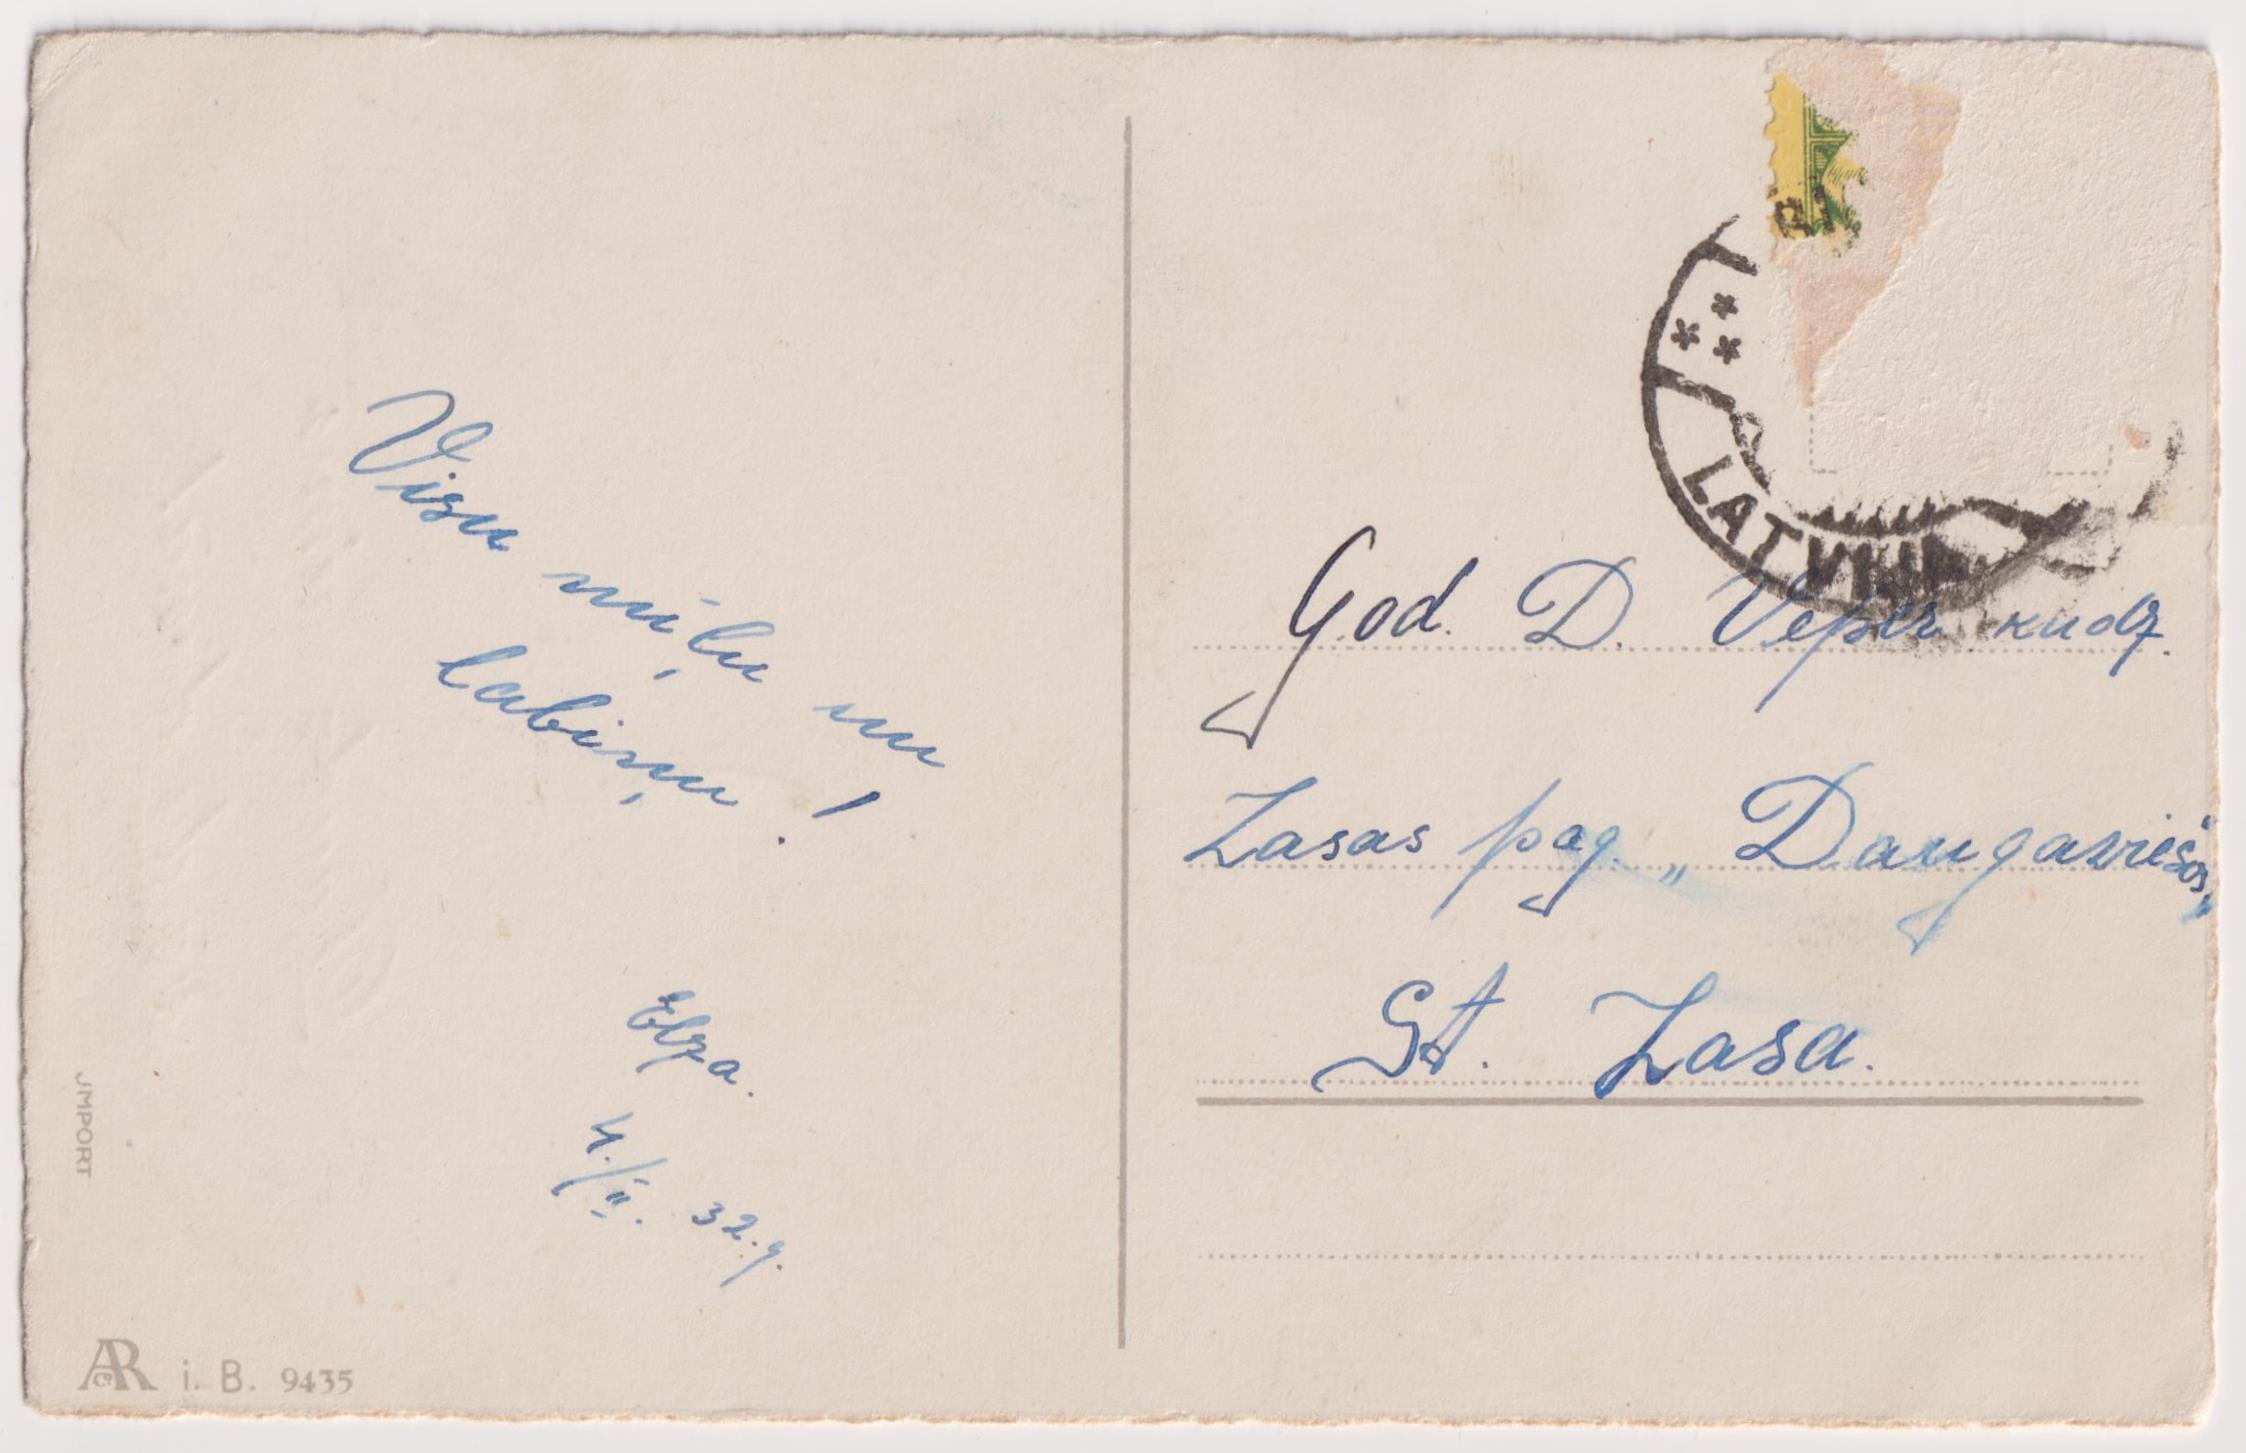 Visu mīļu un
labiņu!
Elza.
4./II. 32.g.
JMPORT
AR i. B. 9435
LATVIJA
God. D. Veper kudz.
Zasas pag. „Daugaviešos„
St. Zasa.